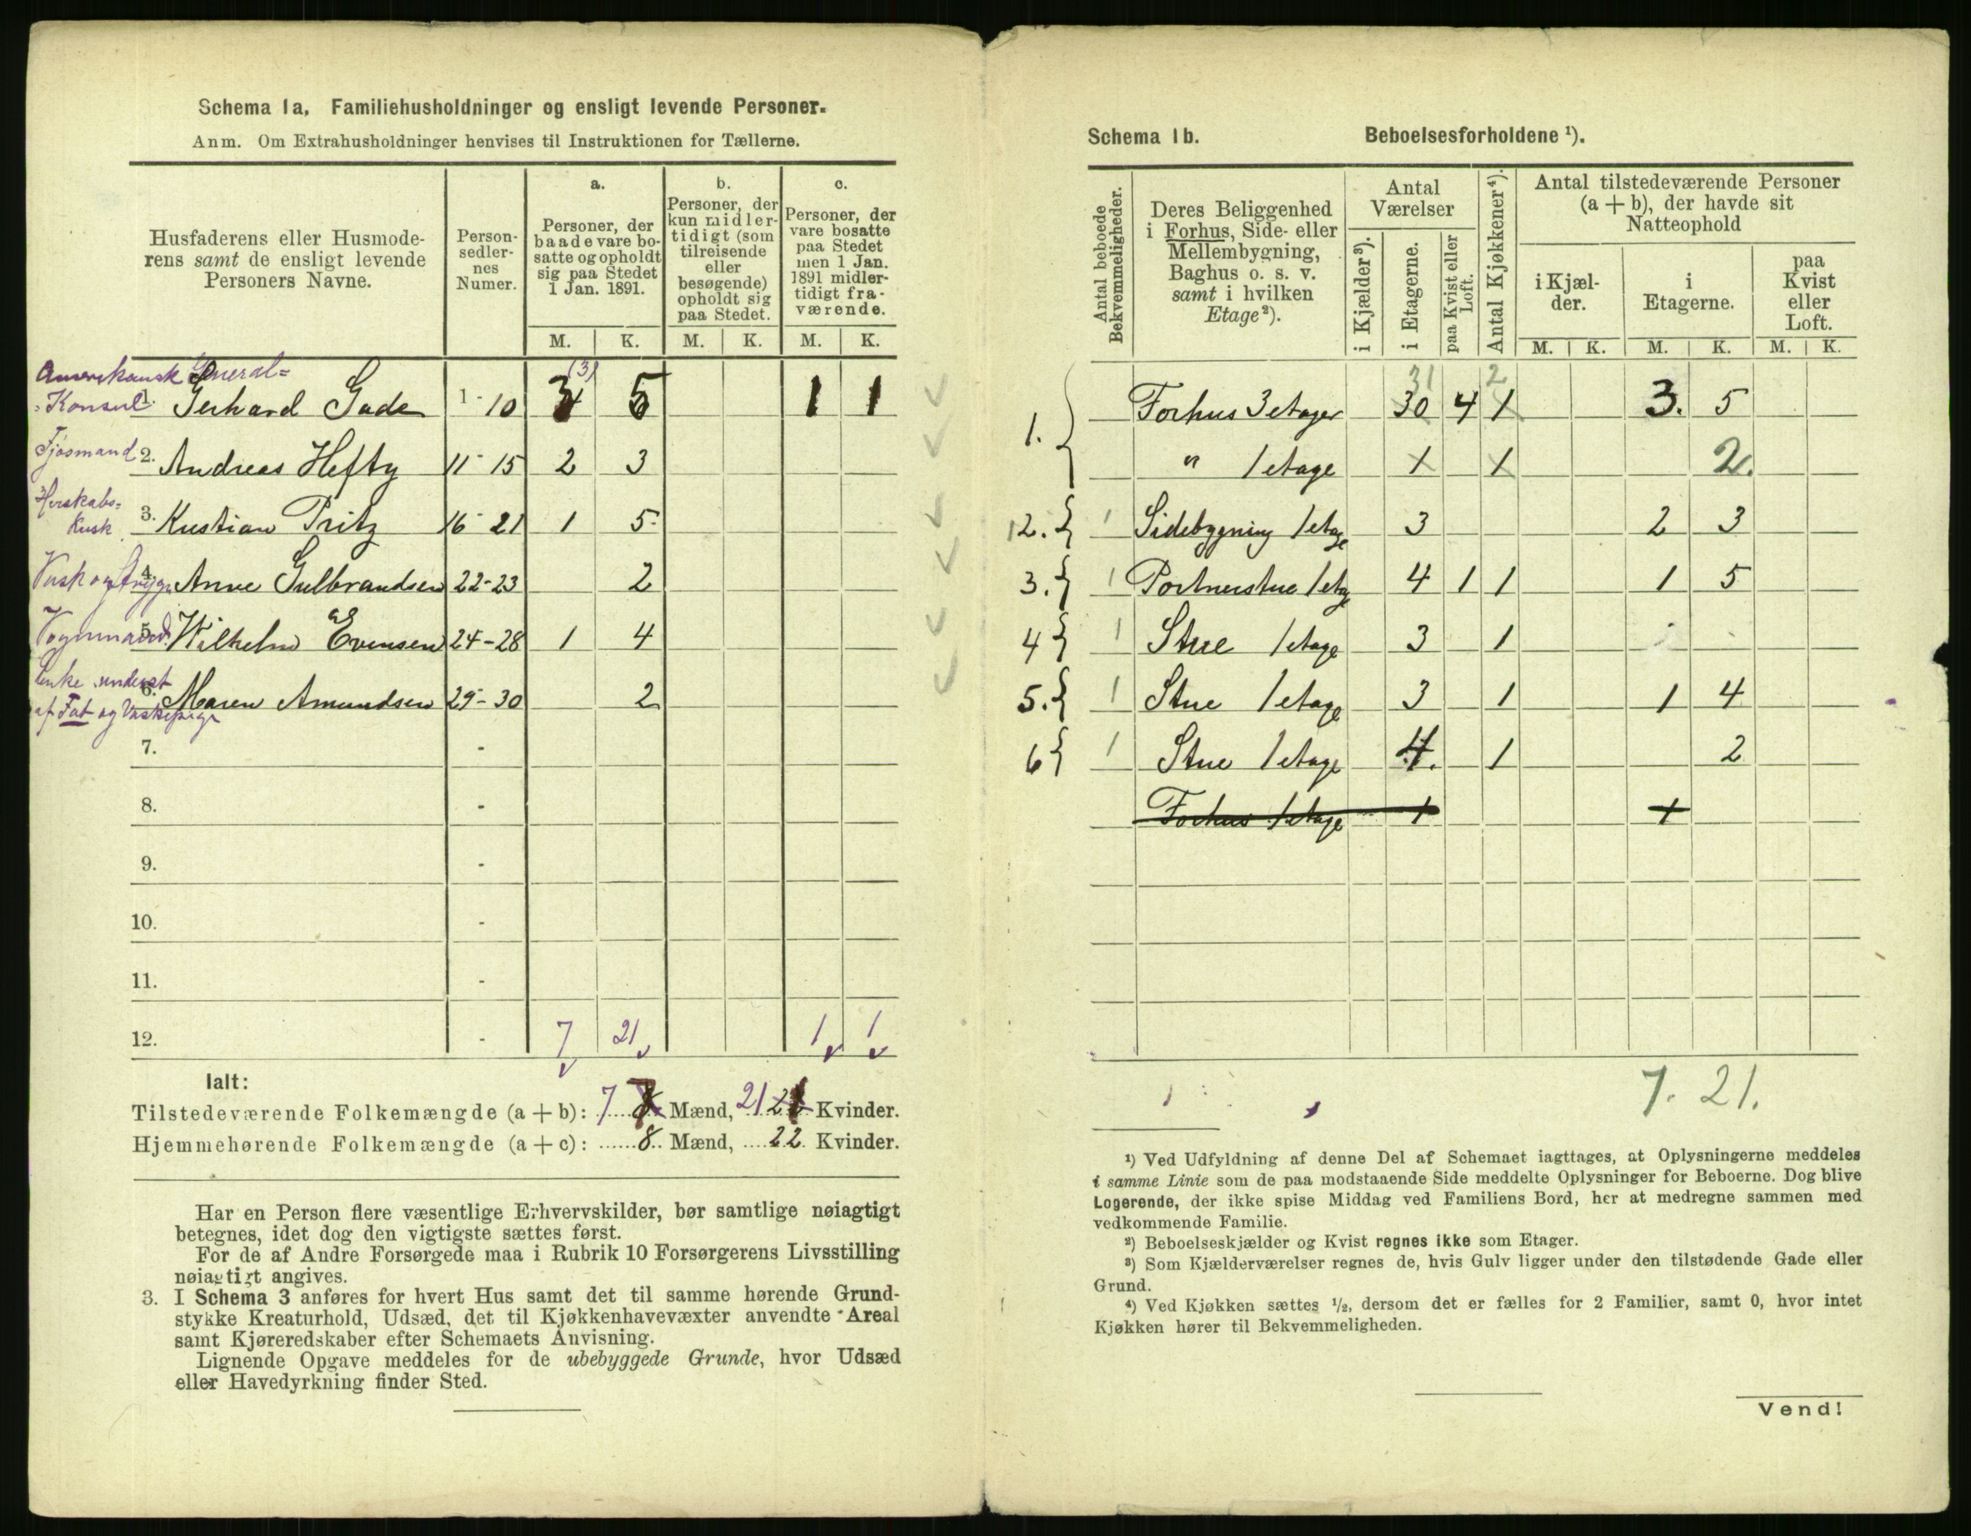 Schema 1a, Familiehusholdninger og ensligt levende Personer.
Anm. Om Extrahusholdninger henvises til Instruktionen for Tællerne.
Husfaderens eller Husmode-
rens samt de ensligt levende
Personers Navne.
Person-
sedler-
nes
Numer.
a.
Personer, der
baade vare bo-
satte og opholdt
sig paa Stedet
1 Jan. 1891.
b.
Personer, der
kun midler-
tidigt (som
tilreisende
eller
besøgende)
opholdt sig
paa Stedet.
c.
Personer, der
vare bosatte
paa Stedet
men 1 Jan.
1891 midler-
tidigt fra-
værende.
M. K. M. K. M. K.
Amerikansk General=
Konsul 1. Gerhard Gade 1 - 10 3 (3) 5 1 1
Fjøsmand 2. Andreas Hefty 11 - 15 2 3
Herskabs=
Kusk. 3. Kristian Pritz 16 - 21 1 5
Vask og Strygn 4. Anne Gulbrandsen 22 - 23 2
Vognmand 5. Wilhelm Evensen 24 - 28 1 4
Enke underst
6. Maren Amundsen 29 - 30 2
af Fat og Vaskepige
7. -
8. -
9. -
10. -
11. -
12. - 7 21 1 1
Ialt:
Tilstedeværende Folkemængde (a + b): 7 Mænd, 21 Kvinder.
Hjemmehørende Folkemængde (a + c): ......8.. Mænd, ....22 Kvinder.
Har en Person flere væsentlige Erhvervskilder, bør samtlige nøiagtigt
betegnes, idet dog den vigtigste sættes først.
For de af Andre Forsørgede maa i Rubrik 10 Forsørgerens Livsstilling
nøiagtigt angives.
3. I Schema 3 anføres for hvert Hus samt det til samme hørende Grund-
stykke Kreaturhold, Udsæd, det til Kjøkkenhavevæxter anvendte Areal
samt Kjøreredskaber efter Schemaets Anvisning.
Lignende Opgave meddeles for de ubebyggede Grunde, hvor Udsæd
eller Havedyrkning finder Sted.
Schema 1b. Beboelsesforholdene ¹).
Antal beboede
Bekvemmeligheder.
Deres Beliggenhed
i Forhus, Side- eller
Mellembygning,
Baghus o. s. v.
samt i hvilken
Etage ²).
Antal
Værelser
i Kjælder ³).
i Etagerne.
paa Kvist eller
Loft.
Antal Kjøkkener ⁴).
Antal tilstedeværende Personer
(a + b), der havde sit
Natteophold
i Kjæl-
der.
i
Etagerne.
paa
Kvist
eller
Loft.
M. K. M. K. M. K.
31 2
1. Forhus 3 etager 30 4 1 3. 5
" 1 etage 1 1 2.
2. 1 Sidebygning 1 etage 3 2 3
3. 1 Portnerstue 1 etage 4 1 1 1 5
4 1 Stue 1 etage 3 1
5. 1 Stue 1 etage 3 1 1 4
6 1 Stue 1 etage 4. 1 2
Forhus 1 etage 1 1
7. 21.
¹) Ved Udfyldning af denne Del af Schemaet iagttages, at Oplysningerne meddeles
i samme Linie som de paa modstaaende Side meddelte Oplysninger for Beboerne. Dog blive
Logerende, der ikke spise Middag ved Familiens Bord, her at medregne sammen med
vedkommende Familie.
²) Beboelseskjælder og Kvist regnes ikke som Etager.
³) Som Kjælderværelser regnes de, hvis Gulv ligger under den tilstødende Gade eller
Grund.
⁴) Ved Kjøkken sættes ½, dersom det er fælles for 2 Familier, samt 0, hvor intet
Kjøkken hører til Bekvemmeligheden.
Vend!